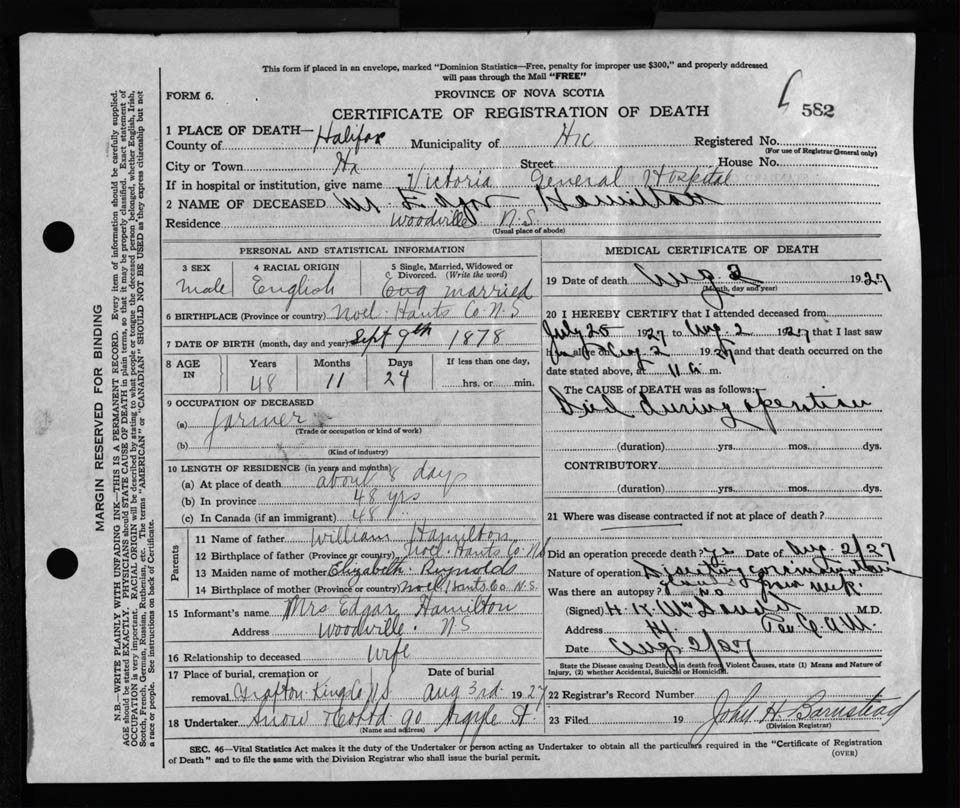 This form if placed in an envelope, marked "Dominion Statistics—Free, penalty for improper use $300," and properly addressed
will pass through the Mail "FREE"
FORM 6.
PROVINCE OF NOVA SCOTIA
582
CERTIFICATE OF REGISTRATION OF DEATH
1 PLACE OF DEATH—
County of Halifax Municipality of Registered No.
(For use of Registrar General only)
City or Town Hx Street House No.
If in hospital or institution, give name Victoria General Hospital
2 NAME OF DECEASED Mr Edgar Hamilton
Residence Woodville N.S.
(Usual place of abode)
PERSONAL AND STATISTICAL INFORMATION
3 SEX male
4 RACIAL ORIGIN English
5 Single, Married, Widowed or Divorced. (Write the word) married
6 BIRTHPLACE (Province or country) Noel Hants Co. N.S
7 DATE OF BIRTH (month, day and year) Sept 9th 1878
8 AGE IN Years 48 Months 11 Days 24 If less than one day, hrs. or min.
9 OCCUPATION OF DECEASED
(a) farmer
(Trade or occupation or kind of work)
(b)
(Kind of industry)
10 LENGTH OF RESIDENCE (in years and months)
(a) At place of death about 8 days
(b) In province 48 yrs
(c) In Canada (if an immigrant) 48
Parents
11 Name of father William Hamilton
12 Birthplace of father (Province or country) Noel Hants Co NS
13 Maiden name of mother Elizabeth Reynolds
14 Birthplace of mother (Province or country) Noel Hants Co N.S.
15 Informant's name Mrs Edgar Hamilton
Address Woodville NS
16 Relationship to deceased wife
17 Place of burial, cremation or removal Grafton Kings Co NS Date of burial Aug 3rd 1927
18 Undertaker Snow & Co Ltd 90 Argyle St.
(Name and address)
MEDICAL CERTIFICATE OF DEATH
19 Date of death Aug 2 1927
(Month, day and year)
20 I HEREBY CERTIFY that I attended deceased from
July 25 1927 to Aug 2 1927 that I last saw
alive on Aug 2 1927 and that death occurred on the
date stated above, at 11 m.
The CAUSE OF DEATH was as follows:
Died during operation
(duration) yrs. mos. dys.
CONTRIBUTORY
(duration) yrs. mos. dys.
21 Where was disease contracted if not at place of death?
Did an operation precede death? yes Date of Aug 2/27
Nature of operation
Was there an autopsy? no
(Signed) M.D.
Address
Date Aug 2/27
State the Disease causing Death, in death from Violent Causes, state (1) Means and Nature of
Injury, (2) whether Accidental, Suicidal or Homicidal.
22 Registrar's Record Number
23 Filed 19 John H. Barnstead
(Division Registrar)
SEC. 46—Vital Statistics Act makes it the duty of the Undertaker or person acting as Undertaker to obtain all the particulars required in the "Certificate of Registration
of Death" and to file the same with the Division Registrar who shall issue the burial permit.
(OVER)
MARGIN RESERVED FOR BINDING
N.B.—WRITE PLAINLY WITH UNFADING INK—THIS IS A PERMANENT RECORD. Every item of information should be carefully supplied.
AGE should be stated EXACTLY. PHYSICIANS should STATE CAUSE OF DEATH in plain terms, so that it may be properly classified. Exact statement of
OCCUPATION is very important. RACIAL ORIGIN will be described by stating to what people or tongue the deceased person belonged, whether English, Irish,
Scotch, French, German, Russian, Ruthenian, etc. The terms "AMERICAN" or "CANADIAN" SHOULD NOT BE USED as they express citizenship but not
a race or people. See instructions on back of Certificate.